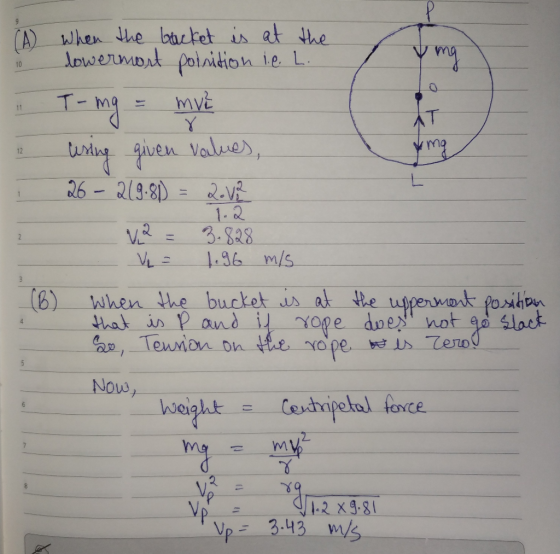 (A) When the bucket is at the
lowermost poisition i.e L.
P
mg
O
T
mg
L
T - mg = mV_L²/r
using given values,
26 - 2(9.81) = 2.V_L²/1.2
V_L² = 3.828
V_L = 1.96 m/s
(B) When the bucket is at the uppermost position
that is P and if rope does not go slack
So, Tension on the rope is Zero
Now,
Weight = Centripetal force
mg = mV_P²/r
V_P² = rg
V_P = √1.2 × 9.81
V_P = 3.43 m/s